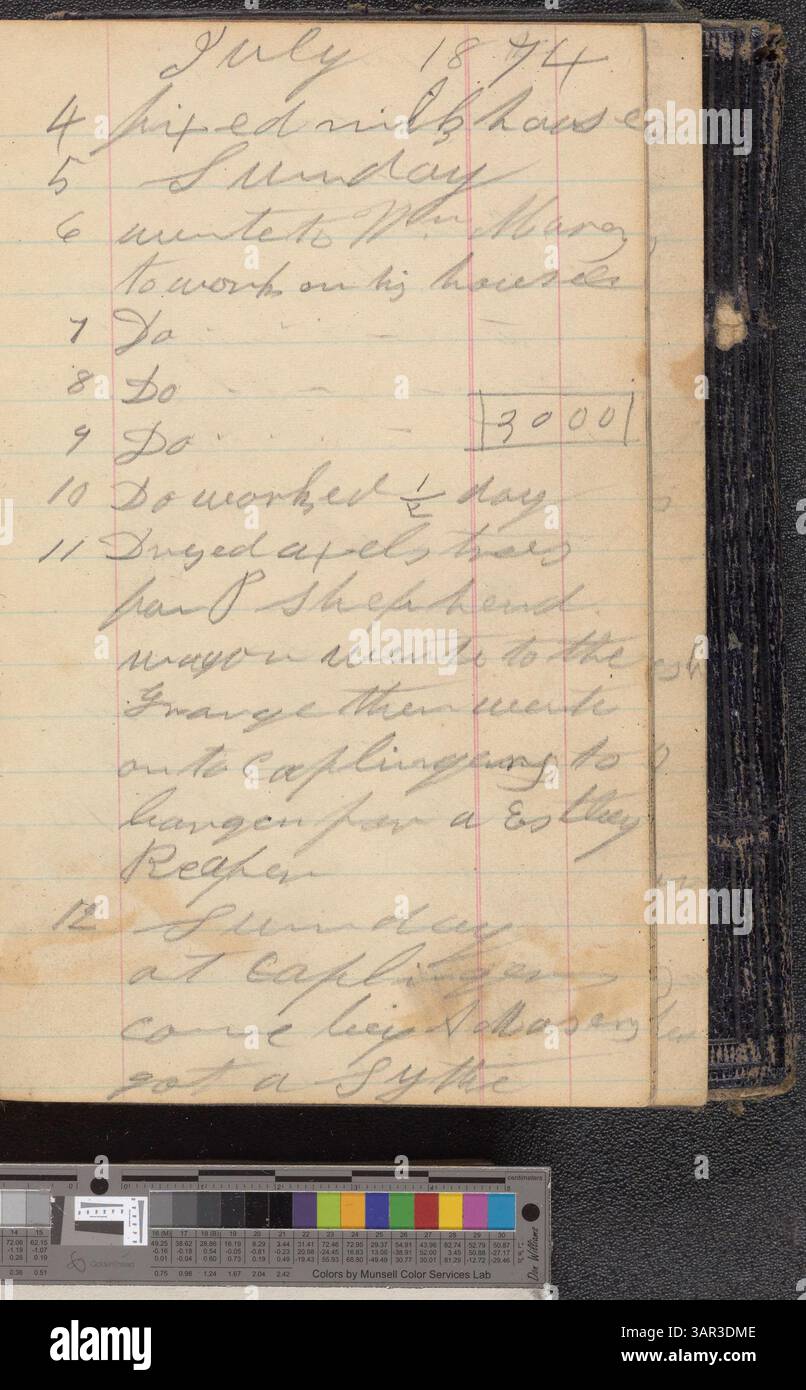 July 1874
4 fixed milk house
5 Sunday
6 wente to Wm
to work on his houses
7 Do
8 Do
3000
9 Do
10 Do worked 1/2 day
11 axels trees
for P Shepherd
wagon wente to the
Grange then wente
on to Caplingers to
bargen for a Estley
Reaper
12 Sunday
at Caplingers
come by Mosers
got a Sythe
centimeters
Golden Thread
Colors by Munsell Color Services Lab
Don Williams
alamy
Image ID: 3AR3DME
www.alamy.com